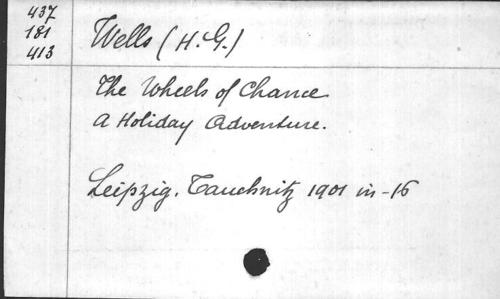 437
181
413
Wells (H.G.)
The Wheels of Chance
A Holiday Adventure.
Leipzig. Tauchnitz 1901 in-16